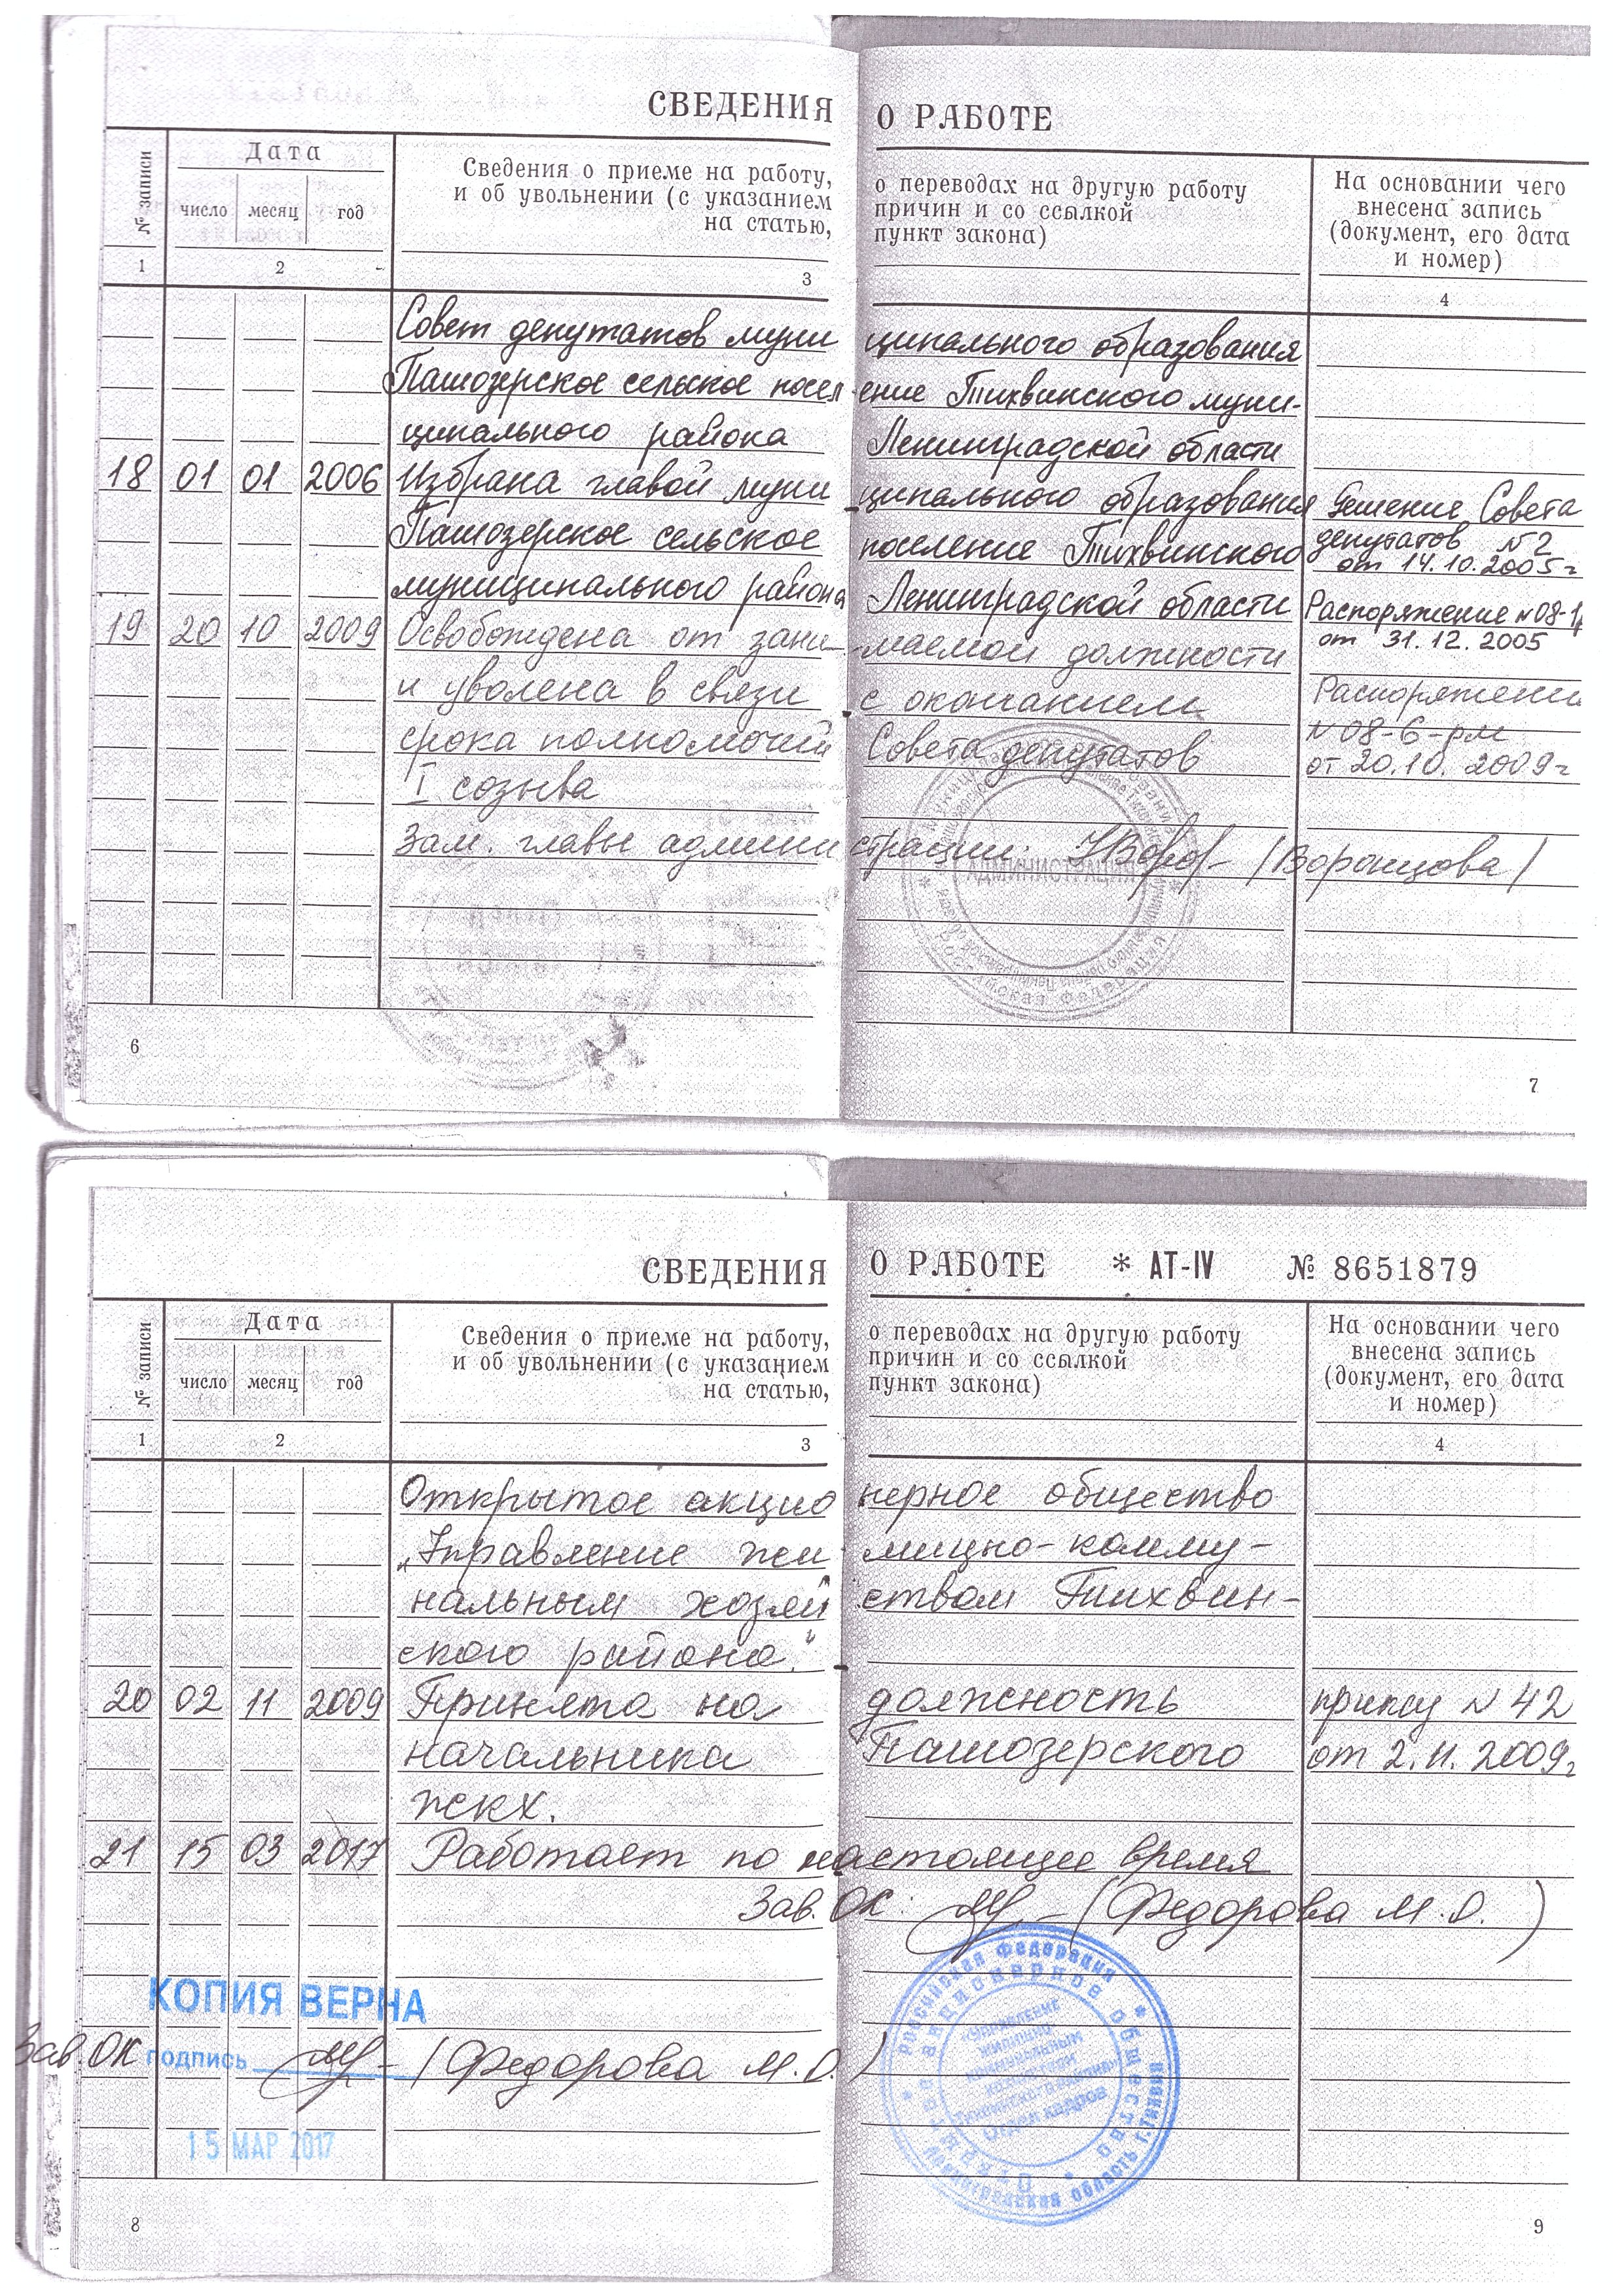 СВЕДЕНИЯ О РАБОТЕ
№ записи
Дата
число месяц год
Сведения о приеме на работу, о переводах на другую работу
и об увольнении (с указанием причин и со ссылкой
на статью, пункт закона)
На основании чего
внесена запись
(документ, его дата
и номер)
1 2 3 4
Совет депутатов муниципального образования
Пашозерское сельское поселение Тихвинского муни-
ципального района Ленинградской области
18 01 01 2006 Избрана главой муниципального образования Решение Совета
Пашозерское сельское поселение Тихвинского депутатов №2
от 14.10.2005г
муниципального района Ленинградской области Распоряжение №08-1
19 20 10 2009 Освобождена от занимаемой должности от 31.12.2005
и уволена в связи с окончанием Распоряжени
срока полномочий Совета депутатов №08-6-рл
I созыва от 20.10.2009г
Зам. главы администрации: (Воронцова)
АДМИНИСТРАЦИЯ
Российская Федерация
6 7
СВЕДЕНИЯ О РАБОТЕ * АТ-IV № 8651879
№ записи
Дата
число месяц год
Сведения о приеме на работу, о переводах на другую работу
и об увольнении (с указанием причин и со ссылкой
на статью, пункт закона)
На основании чего
внесена запись
(документ, его дата
и номер)
1 2 3 4
Открытое акционерное общество
„Управление жилищно-комму-
нальным хозяйством Тихвин-
ского района."
20 02 11 2009 Принята на должность приказ №42
начальника Пашозерского от 2.11.2009г
ЖКХ.
21 15 03 2017 Работает по настоящее время
Зав. ОК: (Федорова М.О.)
КОПИЯ ВЕРНА
Зав. ОК подпись (Федорова М.О.)
15 МАР 2017
Российская Федерация
Открытое акционерное общество
«Управление
жилищно-
коммунальным
хозяйством
Тихвинского района»
Отдел кадров
8 9